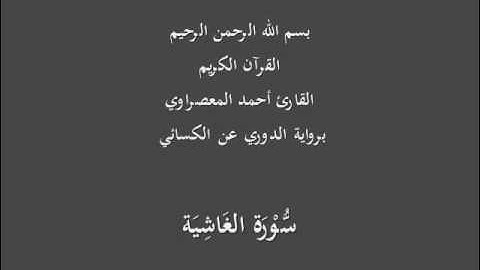 بسم الله الرحمن الرحيم
القرآن الكريم
القارئ أحمد المعصراوي
برواية الدوري عن الكسائي
سُّوْرَة الغَاشِيَة